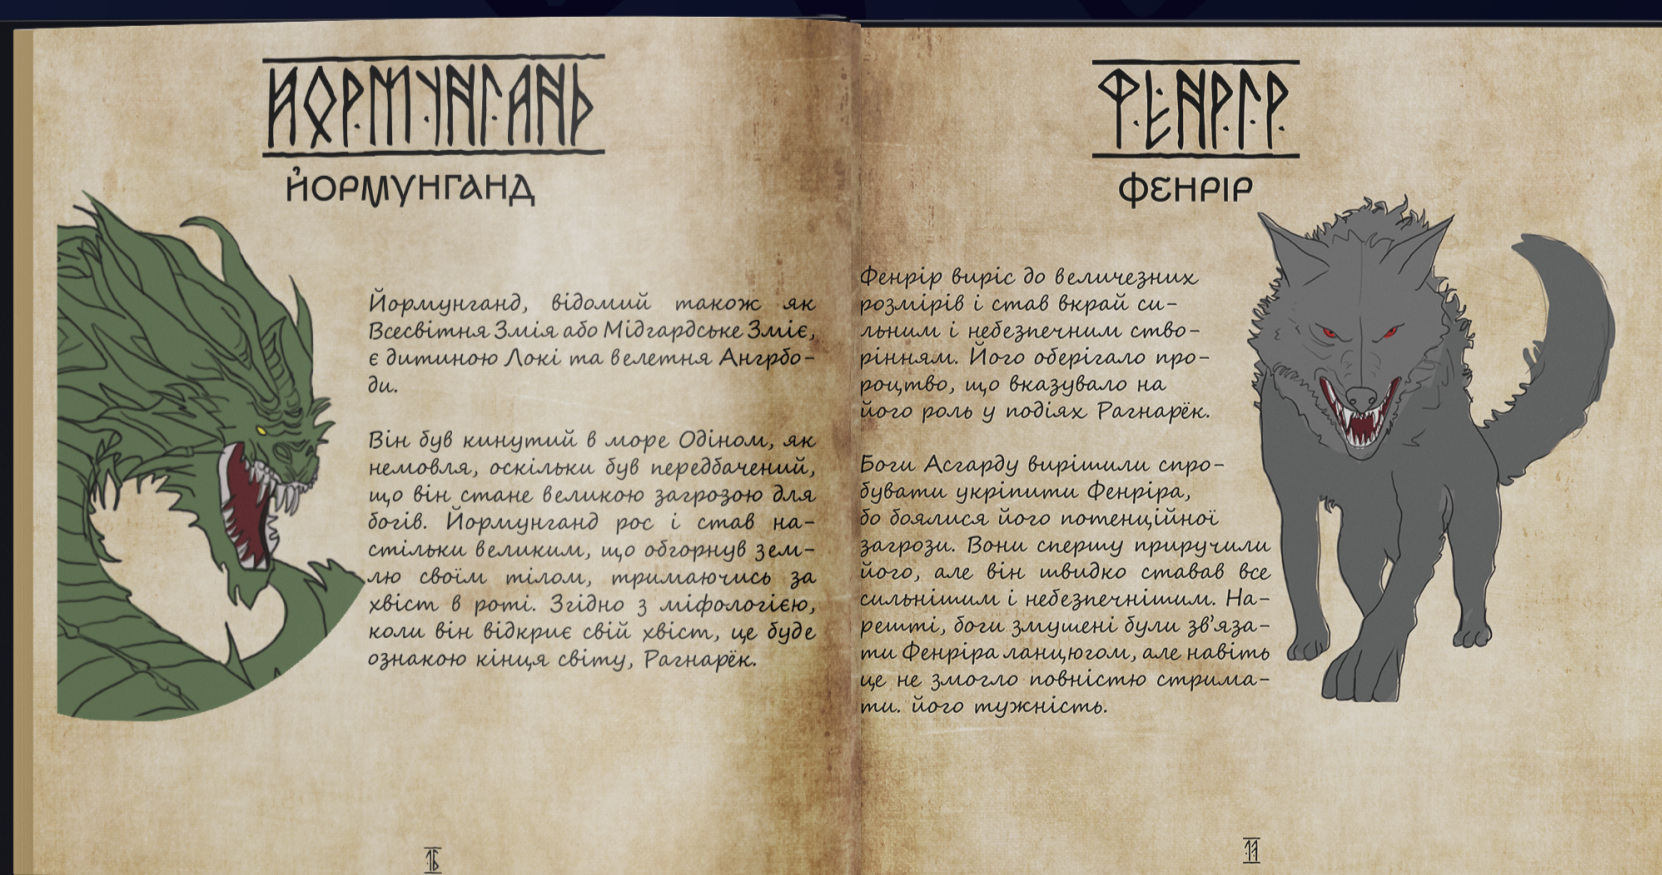 ЙОРМУНГАНД
ЙОРМУНГАНД
Йормунганд, відомий також як
Всесвітня Змія або Мідгардське Зміє,
є дитиною Локі та велетня Ангрбо-
ди.
Він був кинутий в море Одіном, як
немовля, оскільки був передбачений,
що він стане великою загрозою для
богів. Йормунганд рос і став на-
стільки великим, що обгорнув зем-
лю своїм тілом, тримаючись за
хвіст в роті. Згідно з міфологією,
коли він відкриє свій хвіст, це буде
ознакою кінця світу, Рагнарёк.
ФЕНРІР
ФЕНРІР
Фенрір виріс до величезних
розмірів і став вкрай си-
льним і небезпечним ство-
рінням. Його оберігало про-
роцтво, що вказувало на
його роль у подіях Рагнарёк.
Боги Асгарду вирішили спро-
бувати укріпити Фенріра,
бо боялися його потенційної
загрози. Вони спершу приручили
його, але він швидко ставав все
сильнішим і небезпечнішим. На-
решті, боги змушені були зв'яза-
ти Фенріра ланцюгом, але навіть
це не змогло повністю стрима-
ти. його тужність.